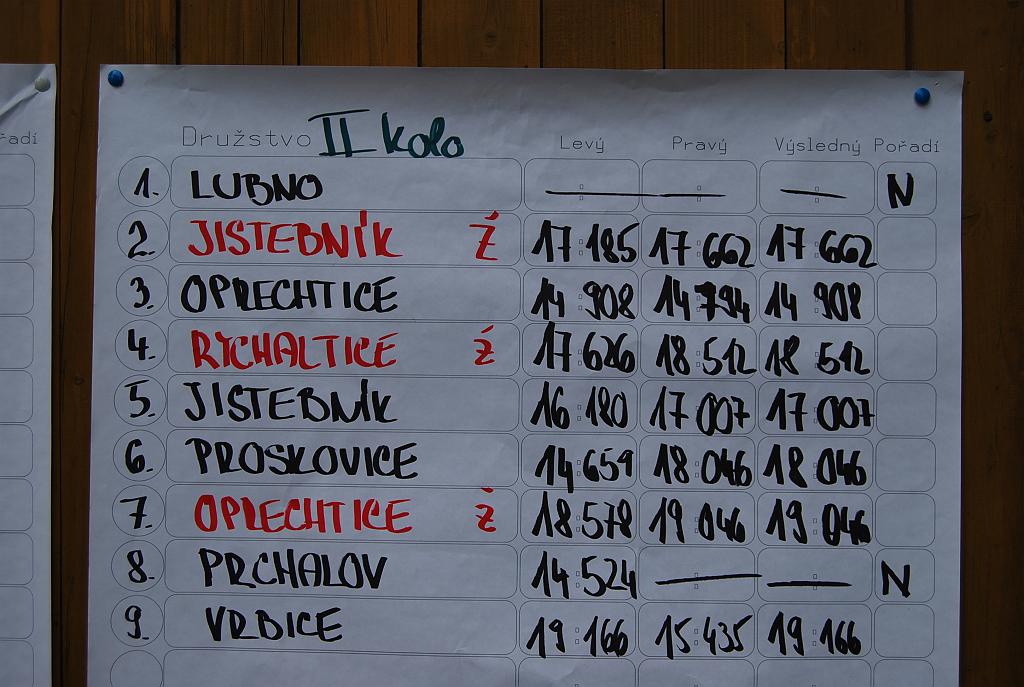 řadí
Družstvo II kolo Levý Pravý Výsledný Pořadí
1. LUBNO — — — N
2. JISTEBNÍK Ž 17:185 17:662 17:662
3. OPRECHTICE 14:908 14:794 14:908
4. RYCHALTICE Ž 17:626 18:512 18:512
5. JISTEBNÍK 16:180 17:007 17:007
6. PROSKOVICE 14:659 18:046 18:046
7. OPRECHTICE Ž 18:578 19:046 19:046
8. PRCHALOV 14:524 — — N
9. VRBICE 19:166 15:435 19:166